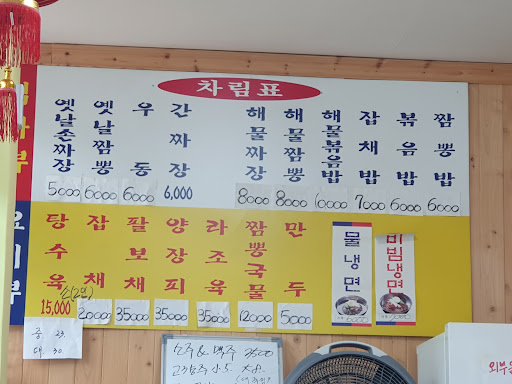 차림표
옛날손짜장 5000
옛날짬뽕 6000
우동 6000
간짜장 6,000
해물짜장 8000
해물짬뽕 8000
해물볶음밥
잡채밥 7000
볶음밥 6000
짬뽕밥 6000
요리부
탕수육 소(2인) 15,000
잡채 20000
팔보채 35000
양장피 35000
라조육 35000
짬뽕국물 12000
만두 5000
물냉면
비빔냉면
중 23.
대 30.
소주 & 맥주
외부음